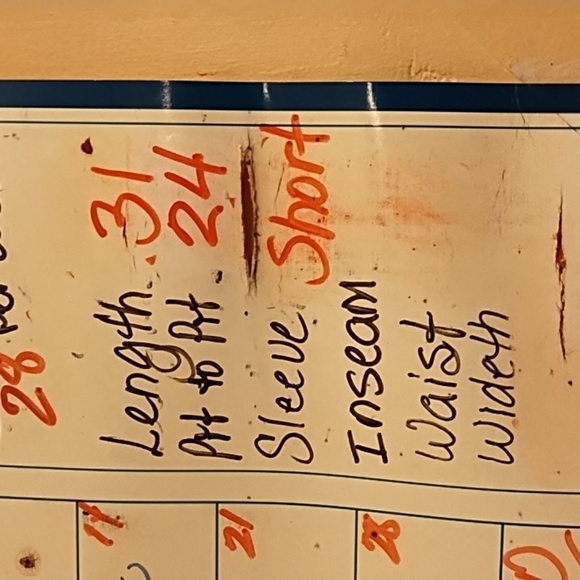 28
Length 31
Prt to Prt 24
Sleeve Short
Inseam
Waist
Wideth
14
21
28